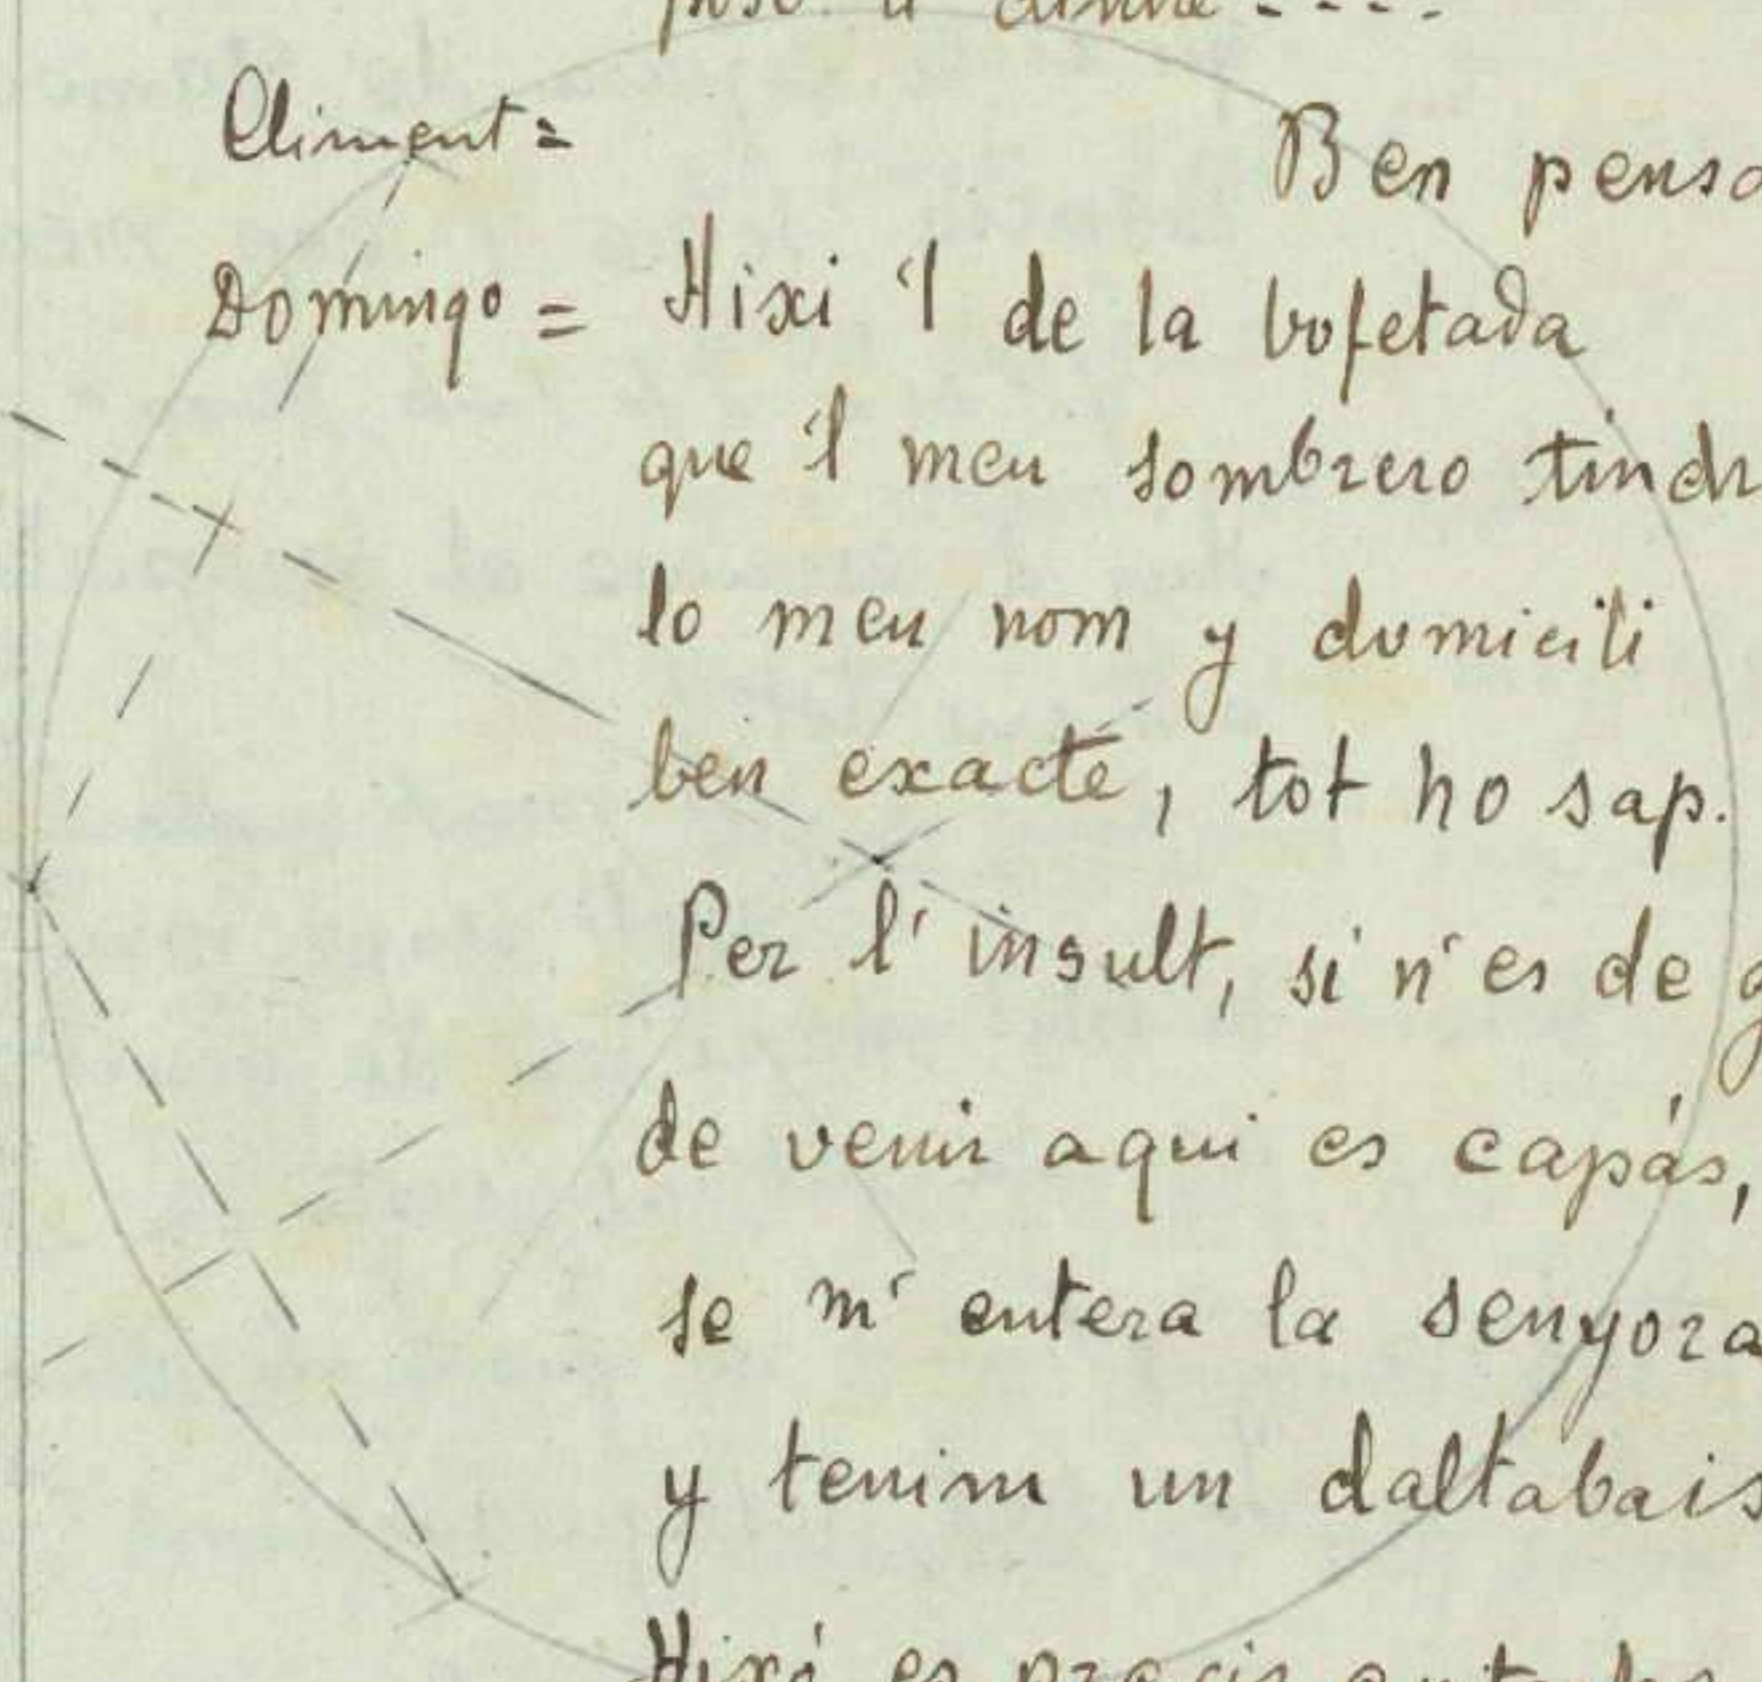 Climent =
Ben pensa
Domingo = Aixi 'l de la bofetada
que 'l meu sombrero tindr
lo meu nom y domicili
ben exacte, tot ho sap.
Per l' insult, si n' es de g
de venir aqui es capás,
se m' entera la senyora
y tenim un daltabais
Aixó es precis